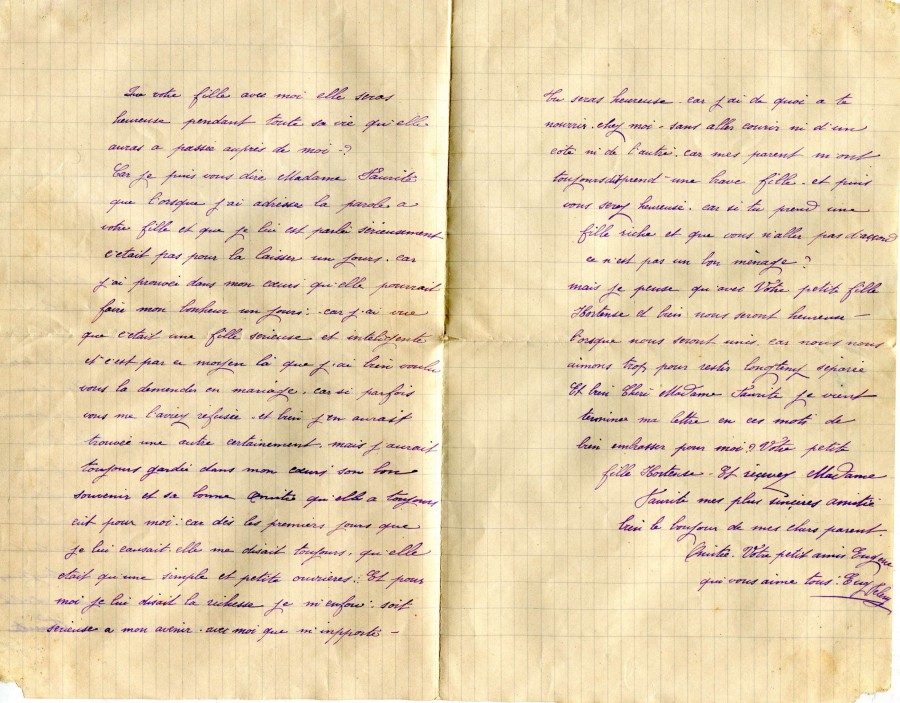 Que votre fille avec moi elle seras
heureuse pendant toute sa vie qu'elle
auras a passée auprès de moi-?
Car je puis vous dire Madame Faurite
que l'orsque j'ai adresser la parole a
votre fille et que je lui est parlé sérieusement
c'était pas pour la laisser un jours. car
j'ai prouvée dans mon cœurs qu'elle pourrait
faire mon bonheur un jours: car j'ai vue
que c'était une fille serieuse et inteligente
et c'est par ce moyen là que j'ai bien voulu
vous la demender en mariage. car si parfois
vous me l'aviez réfusée. et bien j'en aurait
trouvée une autre certainement mais j'aurait
toujours gardée dans mon cœurs son bon
souvenir et sa bonne amitié qu'elle a toujours
eût pour moi: car dès les premiers jours que
je lui causait elle me disait toujours. qu'elle
était qu'une simple et petite ouvrières: Et pour
moi je lui dirait la richesse je m'enfou: soit
serieuse a mon avenir. avec moi que m'inpporte-
Tu seras heureuse. car j'ai de quoi a te
nourrir. chez moi- sans aller courir ni d'un
coté ni de l'autre. car mes parent m'ont
toujours dit prend-une brave fille. et puis
vous serez heureuse. car si tu prend une
fille riche et que vous n'aller pas d'assord
ce n'est pas un bon ménage?
mais je pense qu'avec Vôtre petite fille
Hortense et bien nous seront heureuse-
l'orsque nous seront unis. car nous nous
aimons trop pour restir longtemp séparée
Et bien Chèri Madame Faurite je vient
terminer ma lettre en ces mots de
bien embrasser pour moi? Vôtre petit
fille Hortense. Et reçevez Madame
Faurite mes plus sinçères amitié
bien le bonjour de mes chers parent.
Vôtre petit amis Eugene
qui vous aime tous: Eug